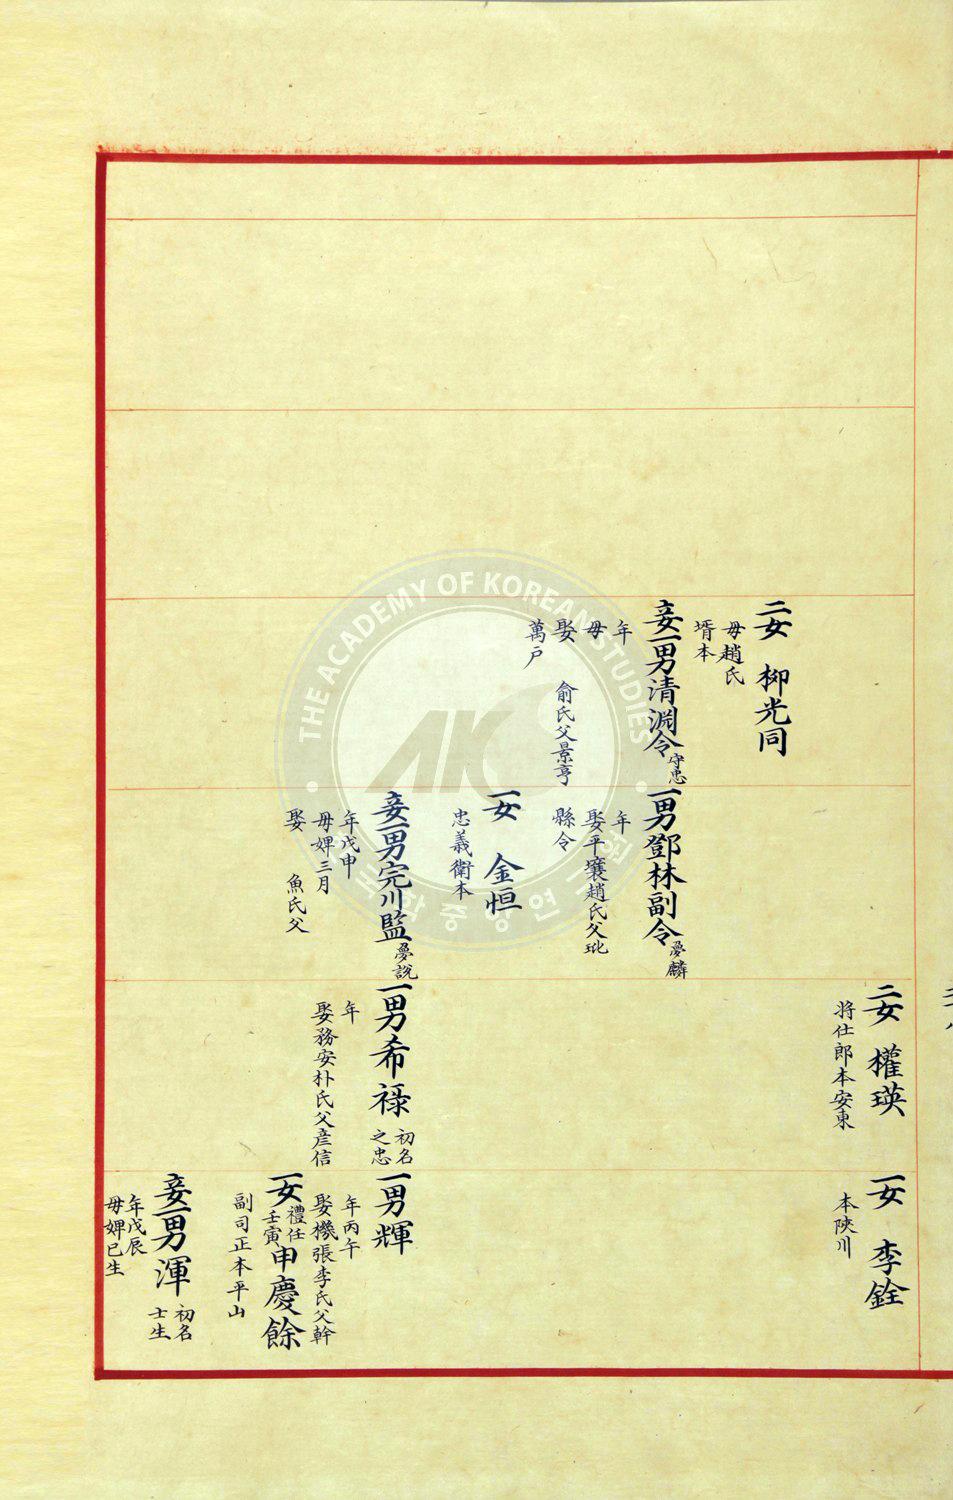 二女 柳光同
母趙氏
壻本
妾一男清淵令守忠
年
母
娶 俞氏父景亨
萬戶
一男鄧林副令夢麟
年
娶平壤趙氏父玭
縣令
一女 金恒
忠義衛本
妾一男完川監夢說
年戊申
母婢三月
娶 魚氏父
二女 權瑛
将仕郎本安東
一男希祿初名之忠
年
娶務安朴氏父彦信
一女 李銓
本陜川
一男輝
年丙午
娶機張李氏父幹
一女禮任壬寅申慶餘
副司正本平山
妾一男渾初名士生
年戊辰
母婢巳生
THE ACADEMY OF KOREAN STUDIES
AKS
한국학중앙연구원